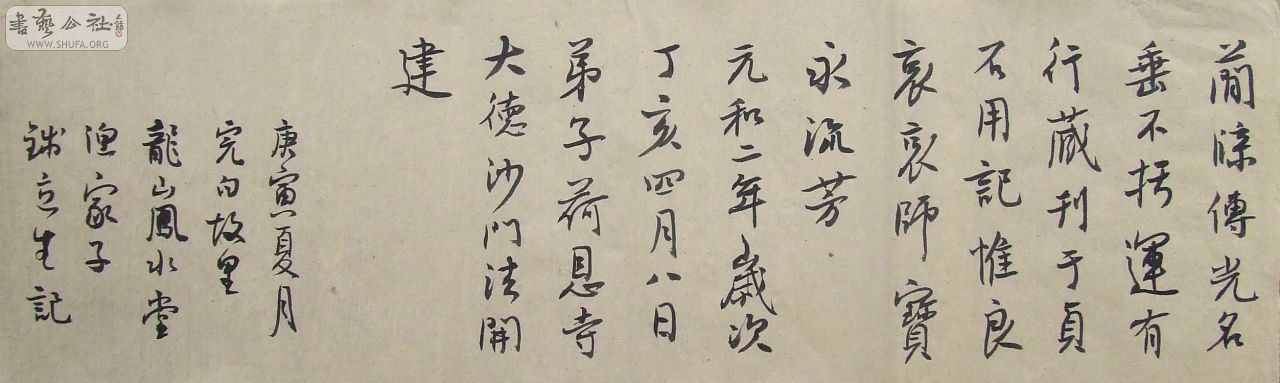 蕳牒傳光名
垂不朽運有
行藏刊于貞
石用記惟良
哀哀師寶
永流芳
元和二年歲次
丁亥四月八日
弟子荷恩寺
大德沙门法開
建
庚寅夏月
完白故里
龍山鳳水堂
漁家子
立生記
書藝公社
WWW.SHUFA.ORG